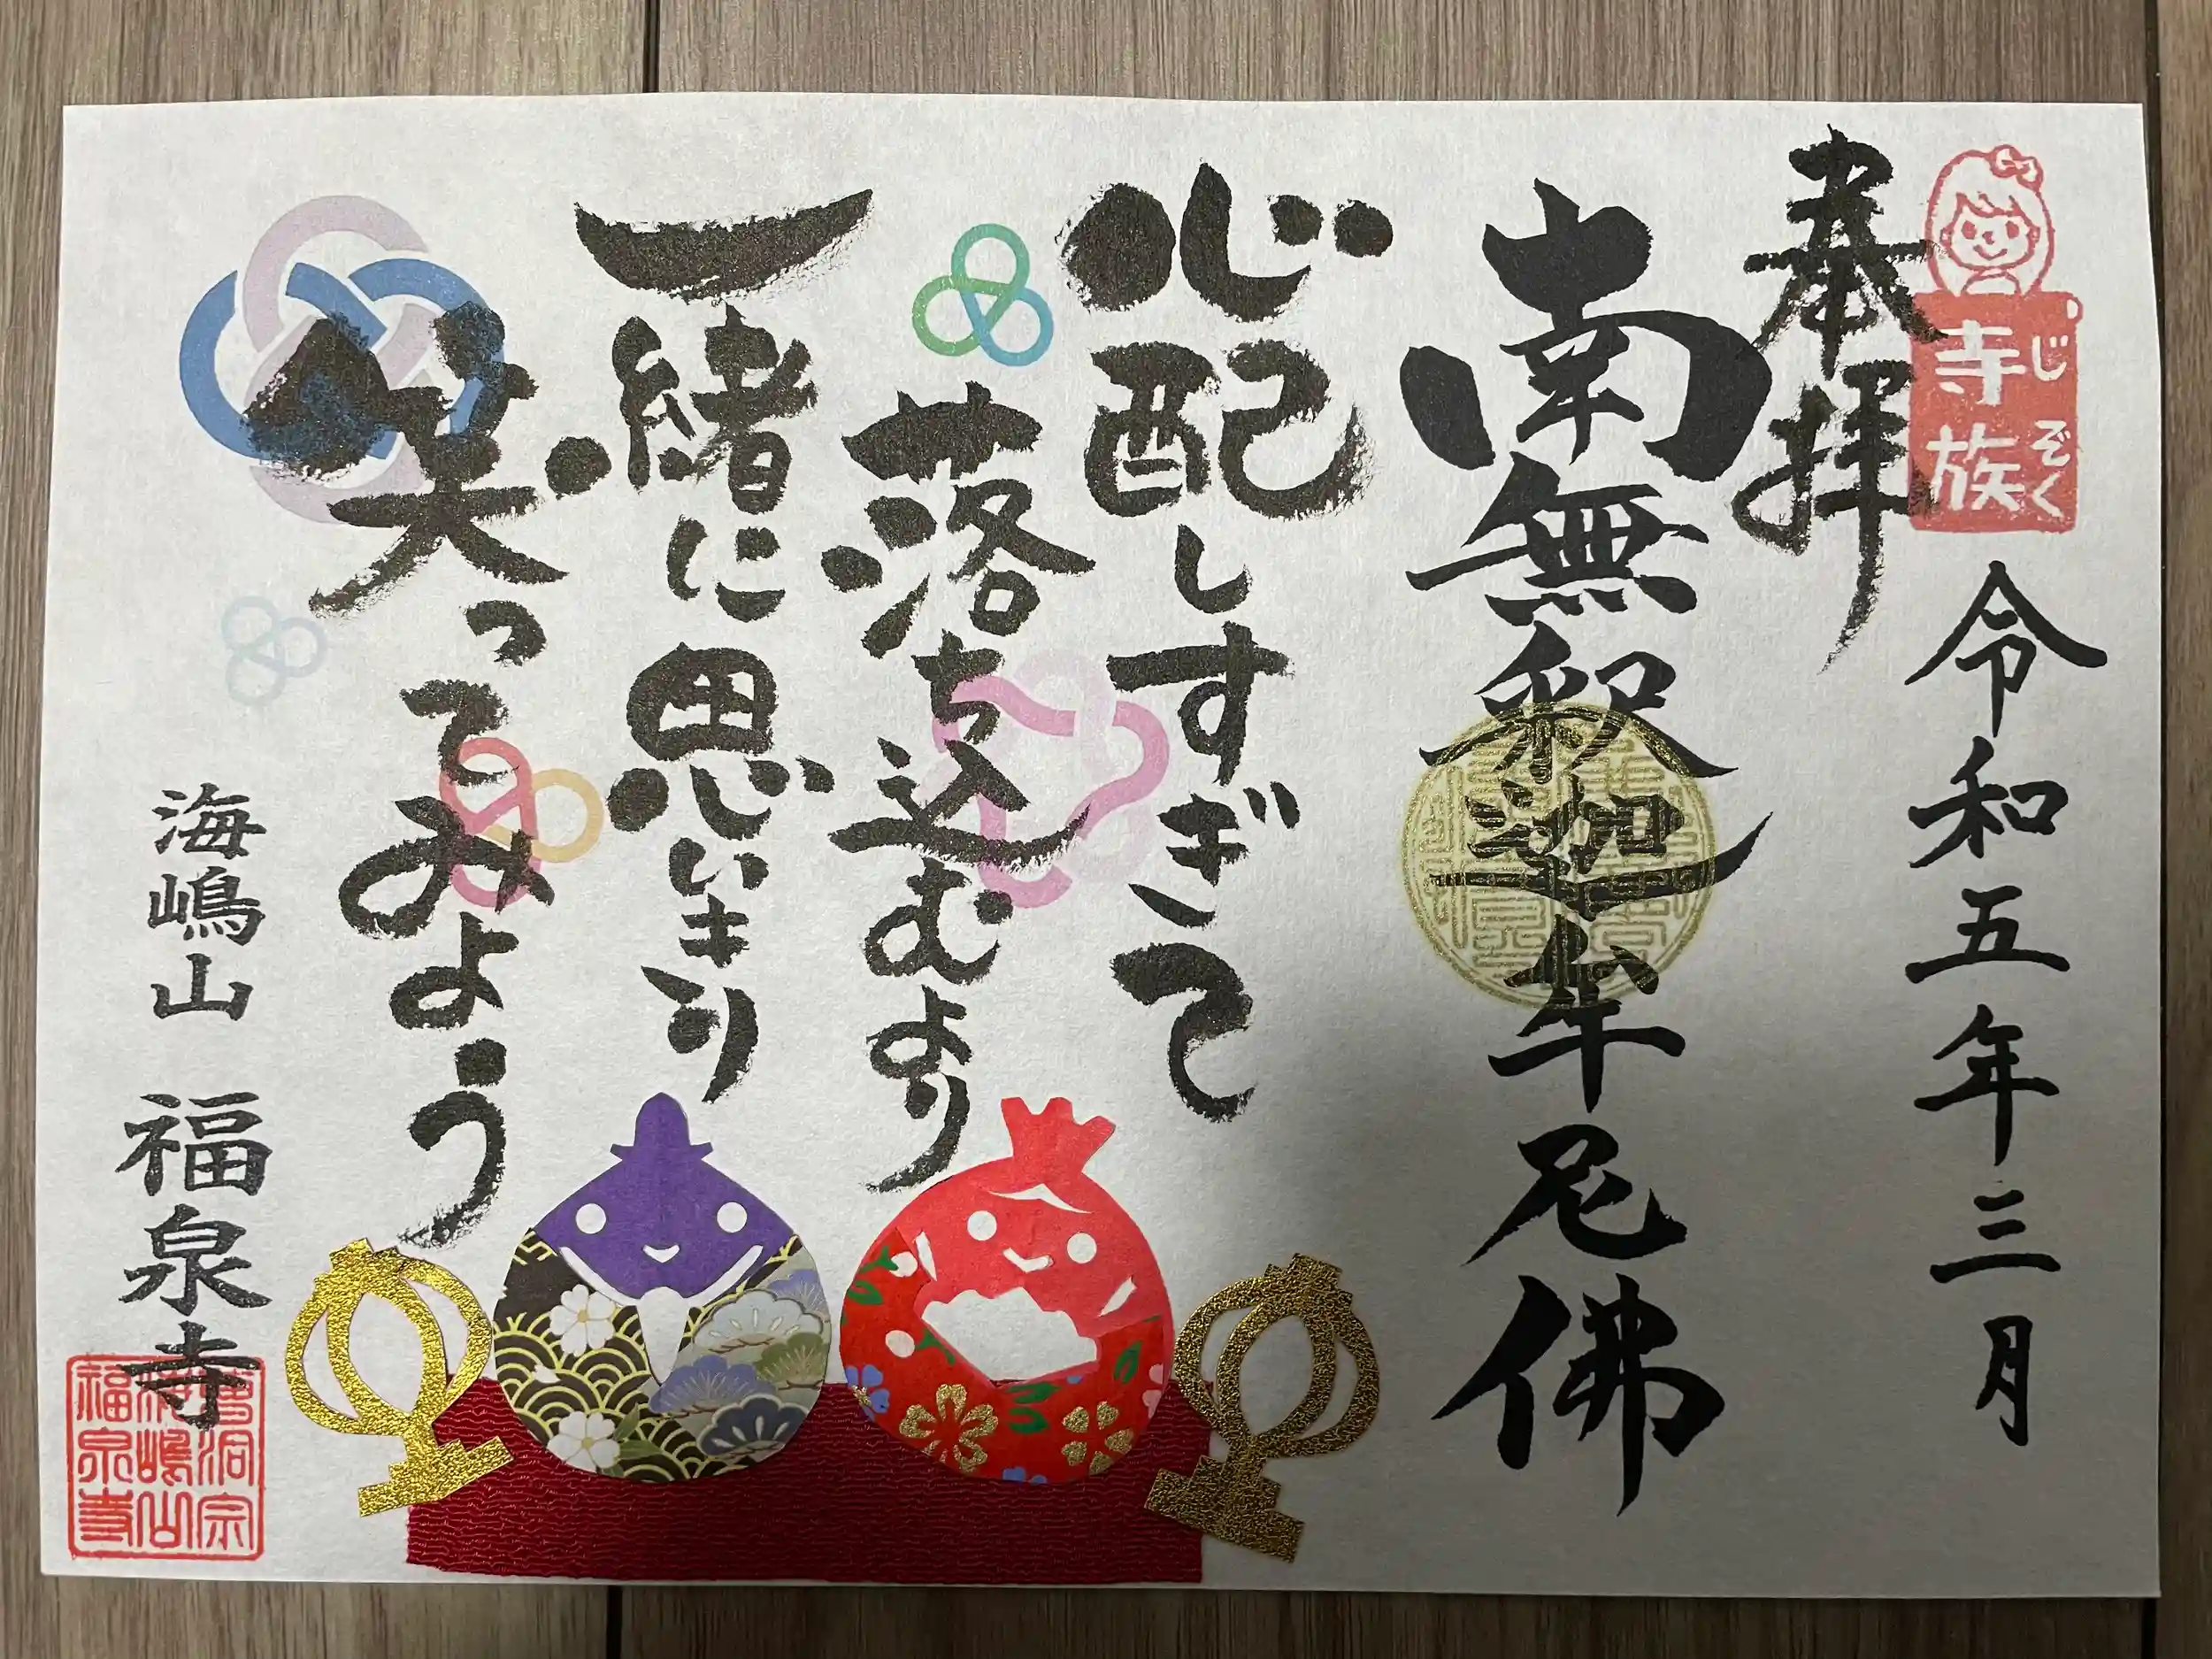 じぞく
寺族
奉拝
令和五年三月
南無釈迦牟尼佛
心配しすぎて
落ち込むより
一緒に思いきり
笑ってみよう
海嶋山 福泉寺
曹洞宗
海嶋山
福泉寺